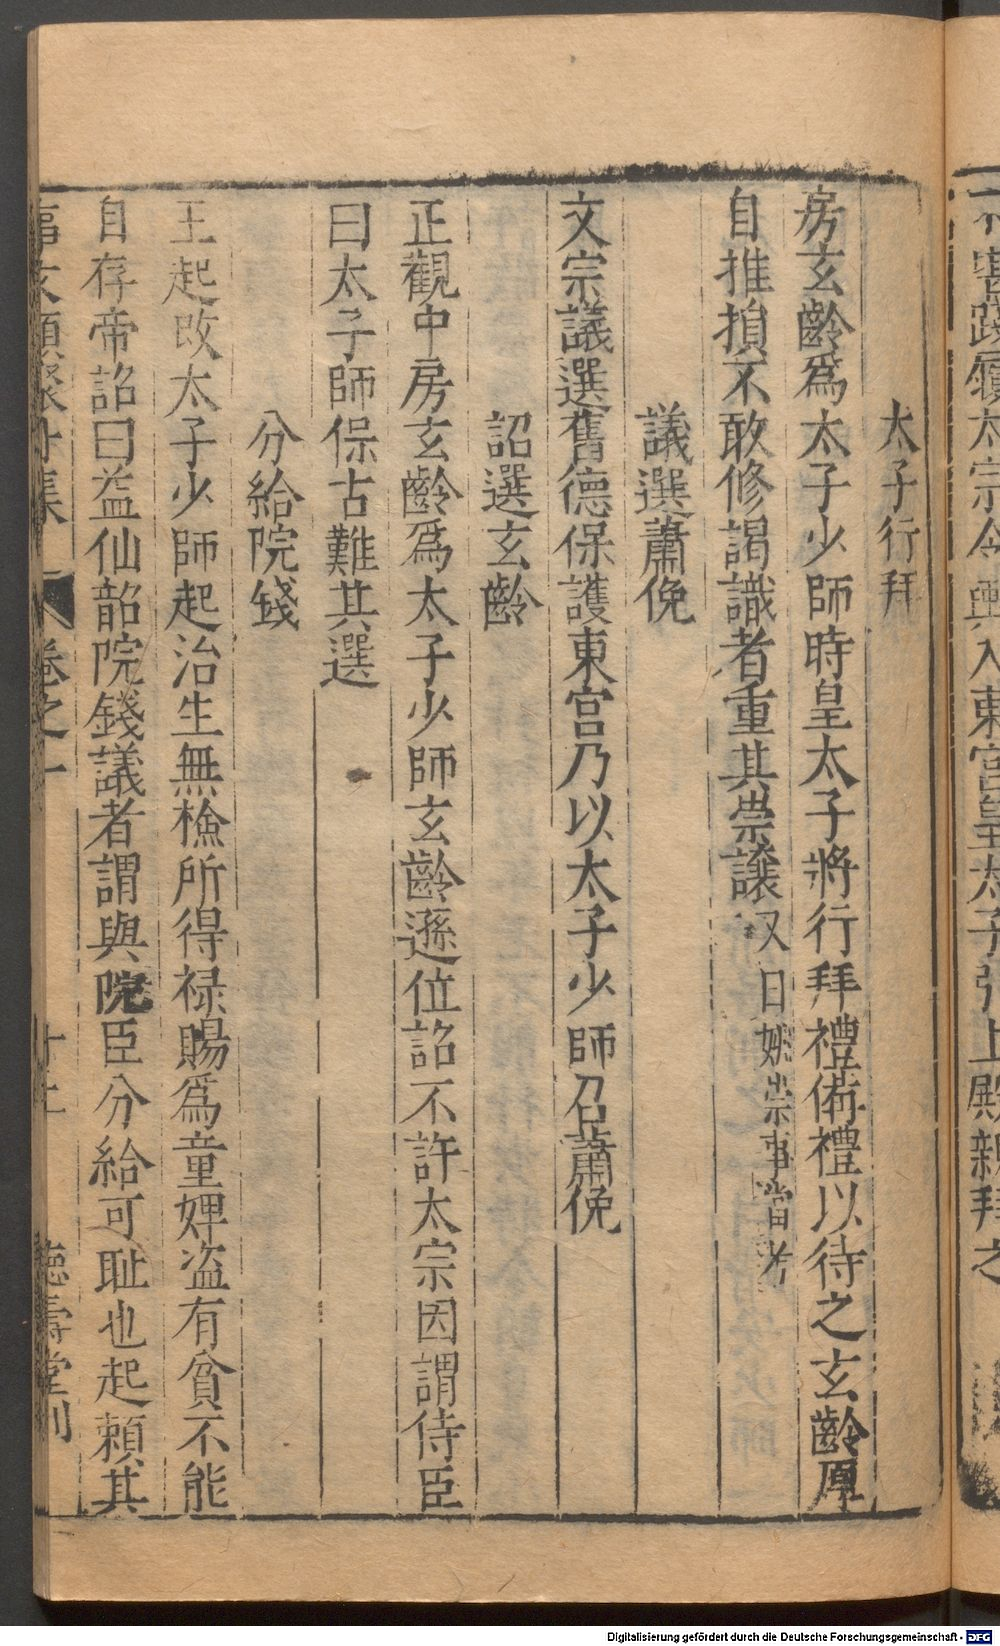 太子行拜
房玄齡爲太子少師時皇太子將行拜禮備禮以待之玄齡厚
自推損不敢修謁識者重其崇讓又日姚崇事當考
議選蕭俛
文宗議選舊德保護東宫乃以太子少師召蕭俛
詔選玄齡
正觀中房玄齡爲太子少師玄齡遜位詔不許太宗因謂侍臣
曰太子師保古難其選
分給院錢
王起改太子少師起治生無檢所得禄賜爲童婢盗有貧不能
自存帝詔曰益仙韶院錢議者謂與院臣分給可耻也起賴其
事文類聚 集 卷之一 德壽堂刊
太宗令輿入東宫皇太子引上殿親拜之
Digitalisierung gefördert durch die Deutsche Forschungsgemeinschaft - DFG